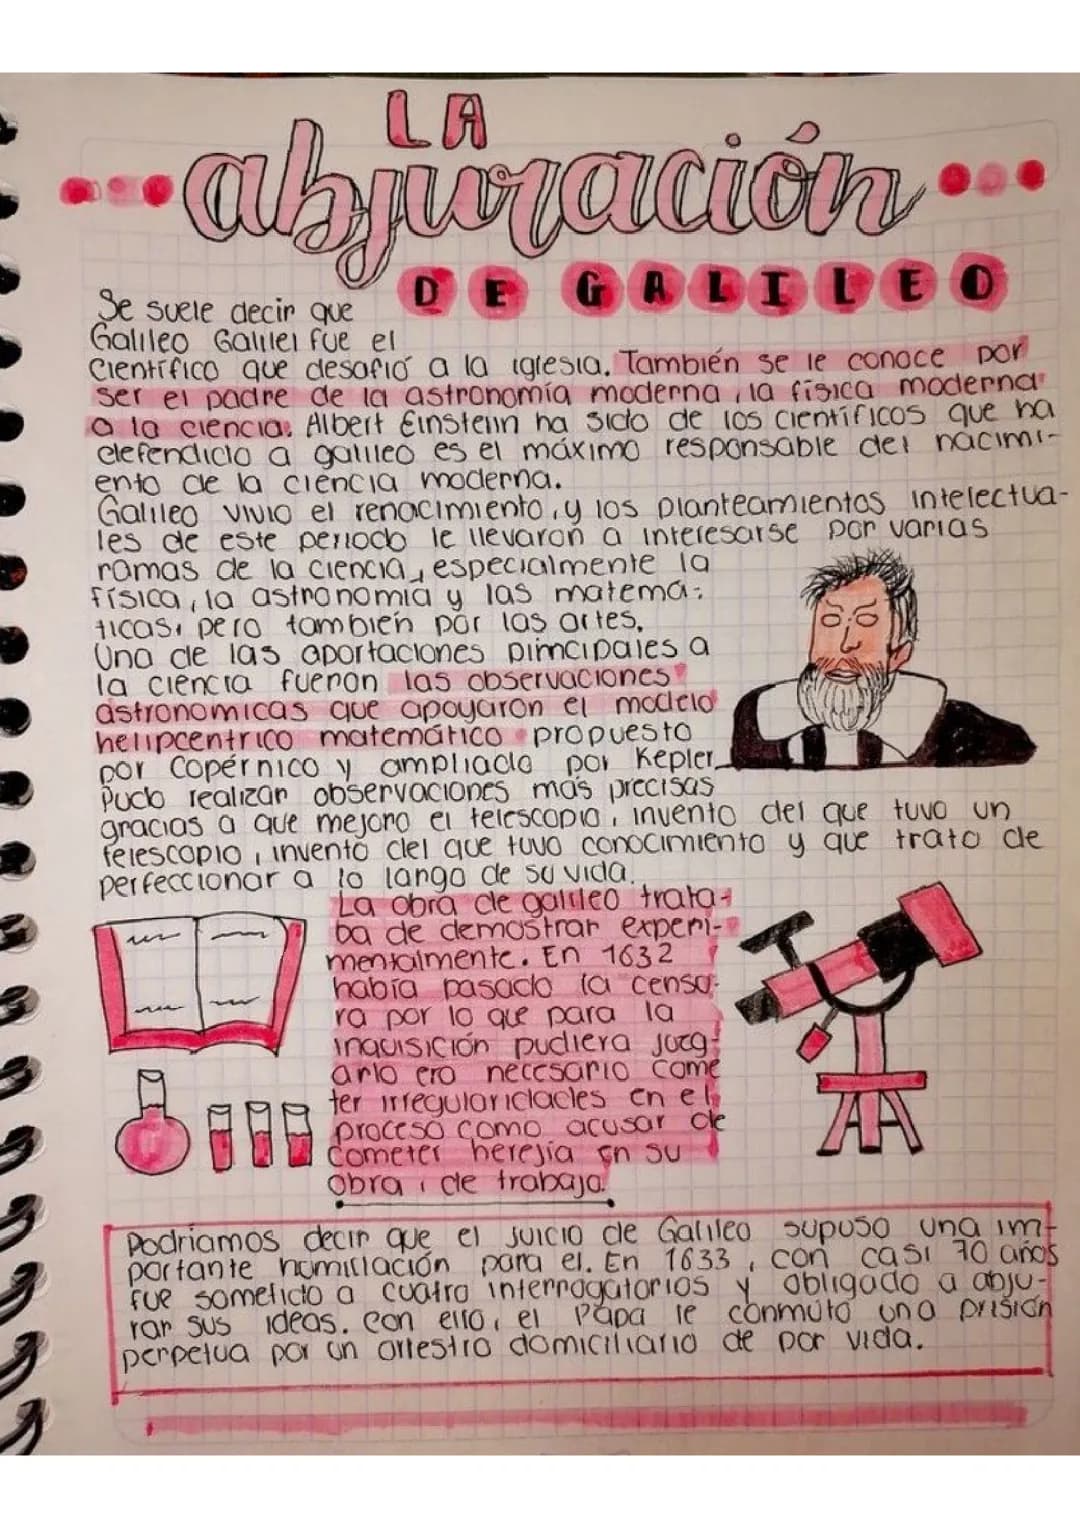 LA
abjuración
DE GALILEO
Se suele decir que
Galileo Galilei fue el
Científico que desafió a la iglesia. También se le conoce por
ser el padre de la astronomía moderna, la física moderna
a la ciencia. Albert Einstein ha sido de los científicos que ha
defendido a galileo es el máximo responsable del nacimi-
ento de la ciencia moderna.
Galileo vivio el renacimiento, y los planteamientos intelectua-
les de este periodo le llevaron a interesarse por varias
ramas de la ciencia, especialmente la
física, la astronomia y las matema-
ticas, pero también por las artes.
Una de las aportaciones principales a
la ciencia fueron las observaciones
astronomicas que apoyaron el modelo
heliocentrico matemático propuesto
por Copérnico y ampliado por Kepler
Pudo realizar observaciones más precisas
gracias a que mejoro el telescopio, invento del que tuvo un
telescopio, invento del que tuvo conocimiento y que trato de
perfeccionar a lo largo de su vida.
La obra de galileo trata-
ba de demostrar experi-
mentalmente. En 1632
había pasado la censu-
ra por lo que para la
inquisición pudiera juzg-
arlo era necesario come
ter irregularidades en el
proceso como acusar de
cometer herejía en su
obra, de trabajo.
Podriamos decir que el juicio de Galileo supuso una im-
portante humillación para el. En 1633, con casi 70 años
fue sometido a cuatro interrogatorios y obligado a abju-
rar sus ideas. Con ello, el Papa le conmutó una prisión
perpetua por un arrestro domiciliario de por vida.